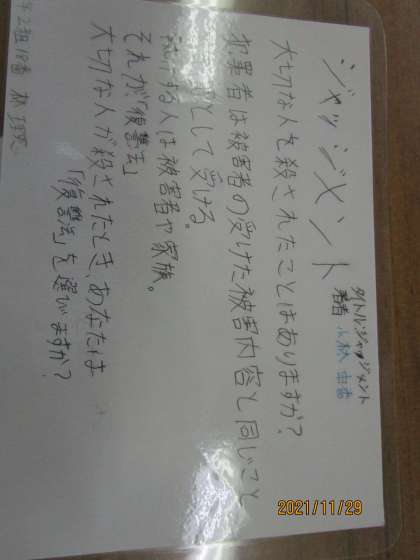 ジャッジメント
タイトル:ジャッジメント
著者 小林由香
大切な人を殺されたことはありますか?
犯罪者は被害者の受けた被害内容と同じこと
として受ける。
する人は被害者や家族。
それが「復讐法」
大切な人が殺されたとき、あなたは
「復讐法」を選びますか?
2組18番 林
2021/11/29